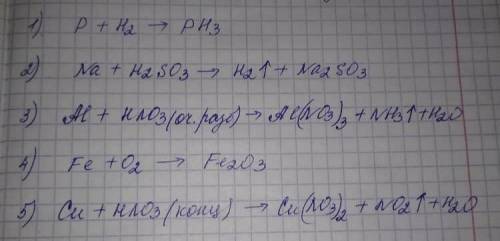 1) P + H2 → PH3
2) Na + H2SO3 → H2↑ + Na2SO3
3) Al + HNO3 (оч.разб) → Al(NO3)3 + NH3↑ + H2O
4) Fe + O2 → Fe2O3
5) Cu + HNO3 (конц) → Cu(NO3)2 + NO2↑ + H2O